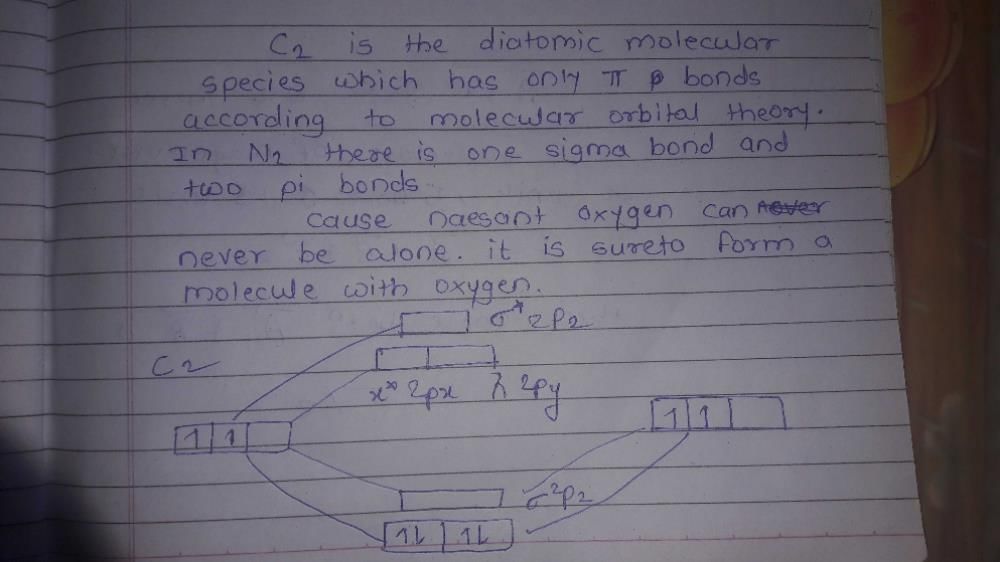 C2 is the diatomic molecular
species which has only π p bonds
according to molecular orbital theory.
In N2 there is one sigma bond and
two pi bonds
cause naesant oxygen can never
never be alone. it is sureto form a
molecule with oxygen.
σ* 2P2
C2
x* 2px λ 2py
1 1
1 1
σ2P2
1L 1L